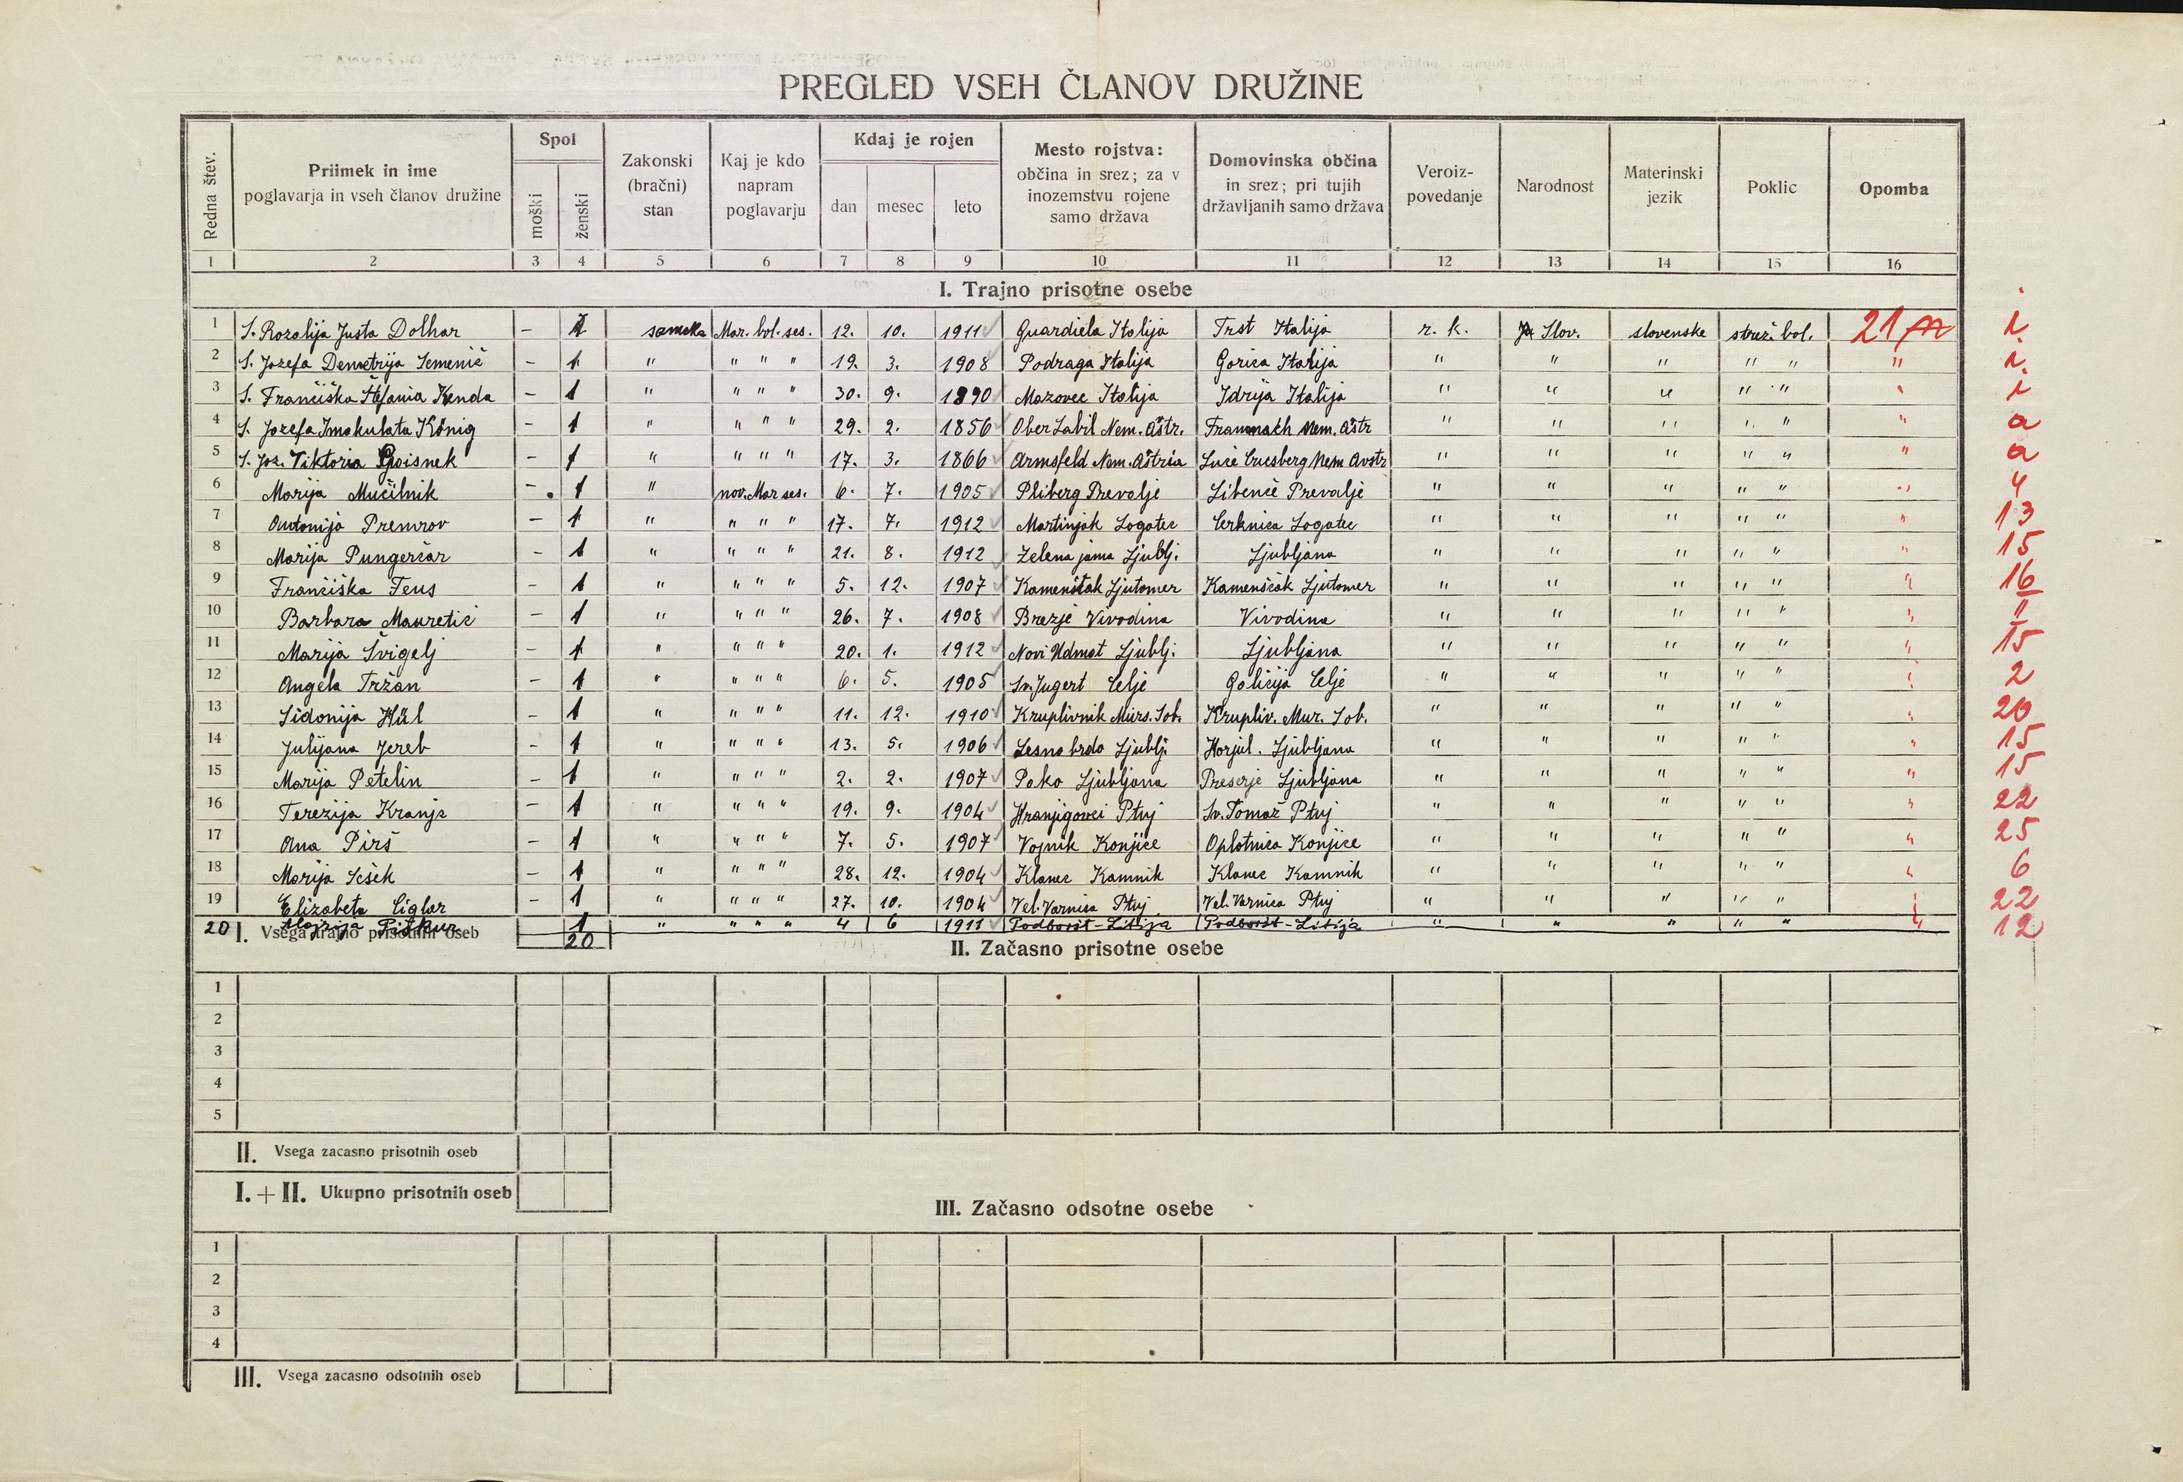 PREGLED VSEH ČLANOV DRUŽINE
Redna štev. Priimek in ime poglavarja in vseh članov družine Spol moški ženski Zakonski (bračni) stan Kaj je kdo napram poglavarju Kdaj je rojen dan mesec leto Mesto rojstva: občina in srez; za v inozemstvu rojene samo država Domovinska občina in srez; pri tujih državljanih samo država Veroizpovedanje Narodnost Materinski jezik Poklic Opomba
1 2 3 4 5 6 7 8 9 10 11 12 13 14 15 16
I. Trajno prisotne osebe
1 S. Rozalija Justa Dolhar – 1 samska Mar. bol. ses. 12. 10. 1911 Guardiela Italija Trst Italija r. k. Slov. slovenske strež. bol. 21 i
2 S. Jozefa Demetrija Semenič – 1 " " " " 19. 3. 1908 Podraga Italija Gorica Italija " " " " " " i.
3 S. Frančiška Štefania Kenda – 1 " " " " 30. 9. 1890 Mazovec Italija Idrija Italija " " " " " " i
4 S. Jozefa Imakulata König – 1 " " " " 29. 2. 1856 Ober Labil Nem. Aŭstr. Frannach Nem. Aŭstr " " " " " " a
5 S. Joz. Viktoria – 1 " " " " 17. 3. 1866 Armsfeld Nem. Aŭstria Nem Avstr " " " " " " a
6 Marija Mučilnik – 1 " nov. Mar ses. 6. 7. 1905 Pliberg Prevalje Libenče Prevalje " " " " " " 4
7 Antonija Premrov – 1 " " " " 17. 7. 1912 Martinjak Logatec Cerknica Logatec " " " " " " 13
8 Marija Pungerčar – 1 " " " " 21. 8. 1912 Zelena jama Ljublj. Ljubljana " " " " " " 15
9 Frančiška Feus – 1 " " " " 5. 12. 1907 Kamenščak Ljutomer Kamenščak Ljutomer " " " " " " 16
10 Barbara Mauretić – 1 " " " " 26. 7. 1908 Brezje Vivodina Vivodina " " " " " " "
11 Marija Švigelj – 1 " " " " 20. 1. 1912 Novi Udmat Ljublj. Ljubljana " " " " " " 15
12 Angela Tržan – 1 " " " " 6. 5. 1905 Sv. Jugert Celje Galicija Celje " " " " " " 2
13 Sidonija Hül – 1 " " " " 11. 12. 1910 Kruplivnik Murs. Sob. Krupliv. Mur. Sob. " " " " " " 20
14 Julijana Jereb – 1 " " " " 13. 5. 1906 Lesno brdo Ljublj. Horjul. Ljubljana " " " " " " 15
15 Marija Petelin – 1 " " " " 2. 2. 1907 Pako Ljubljana Preserje Ljubljana " " " " " " 15
16 Terezija Kranjc – 1 " " " " 19. 9. 1904 Hranjigovci Ptuj Sv. Tomaž Ptuj " " " " " " 22
17 Ana Pirš – 1 " " " " 7. 5. 1907 Vojnik Konjice Oplotnica Konjice " " " " " " 25
18 Marija Sešek – 1 " " " " 28. 12. 1904 Klanec Kamnik Klanec Kamnik " " " " " " 6
19 Elizabeta Ciglar – 1 " " " " 27. 10. 1904 Vel. Varnica Ptuj Vel. Varnica Ptuj " " " " " " 22
20 Alojzija 1 " " " " 4 6 1911 Podboršt - Litija Podboršt - Litija " " " " " " 12
I. Vsega trajno prisotnih oseb 20
II. Začasno prisotne osebe
1
2
3
4
5
II. Vsega zacasno prisotnih oseb
I. + II. Ukupno prisotnih oseb
III. Začasno odsotne osebe
1
2
3
4
III. Vsega zacasno odsotnih oseb